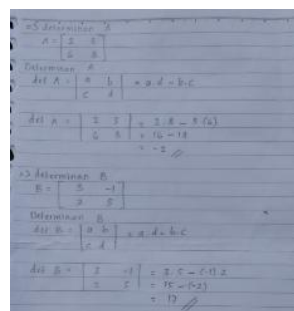 => determinan A
A = [ 2 3
6 8 ]
Determinan A
det A = | a b | = a.d - b.c
c d
det A = | 2 3 | = 2.8 - 3 (6)
6 8 | = 16 - 18
= -2 //
=> determinan B
B = [ 3 -1
2 5 ]
Determinan B
det B = | a b | = a.d - b.c
c d
det B = | 3 -1 | = 3.5 - (-1) 2
2 5 | = 15 - (-2)
= 17 //